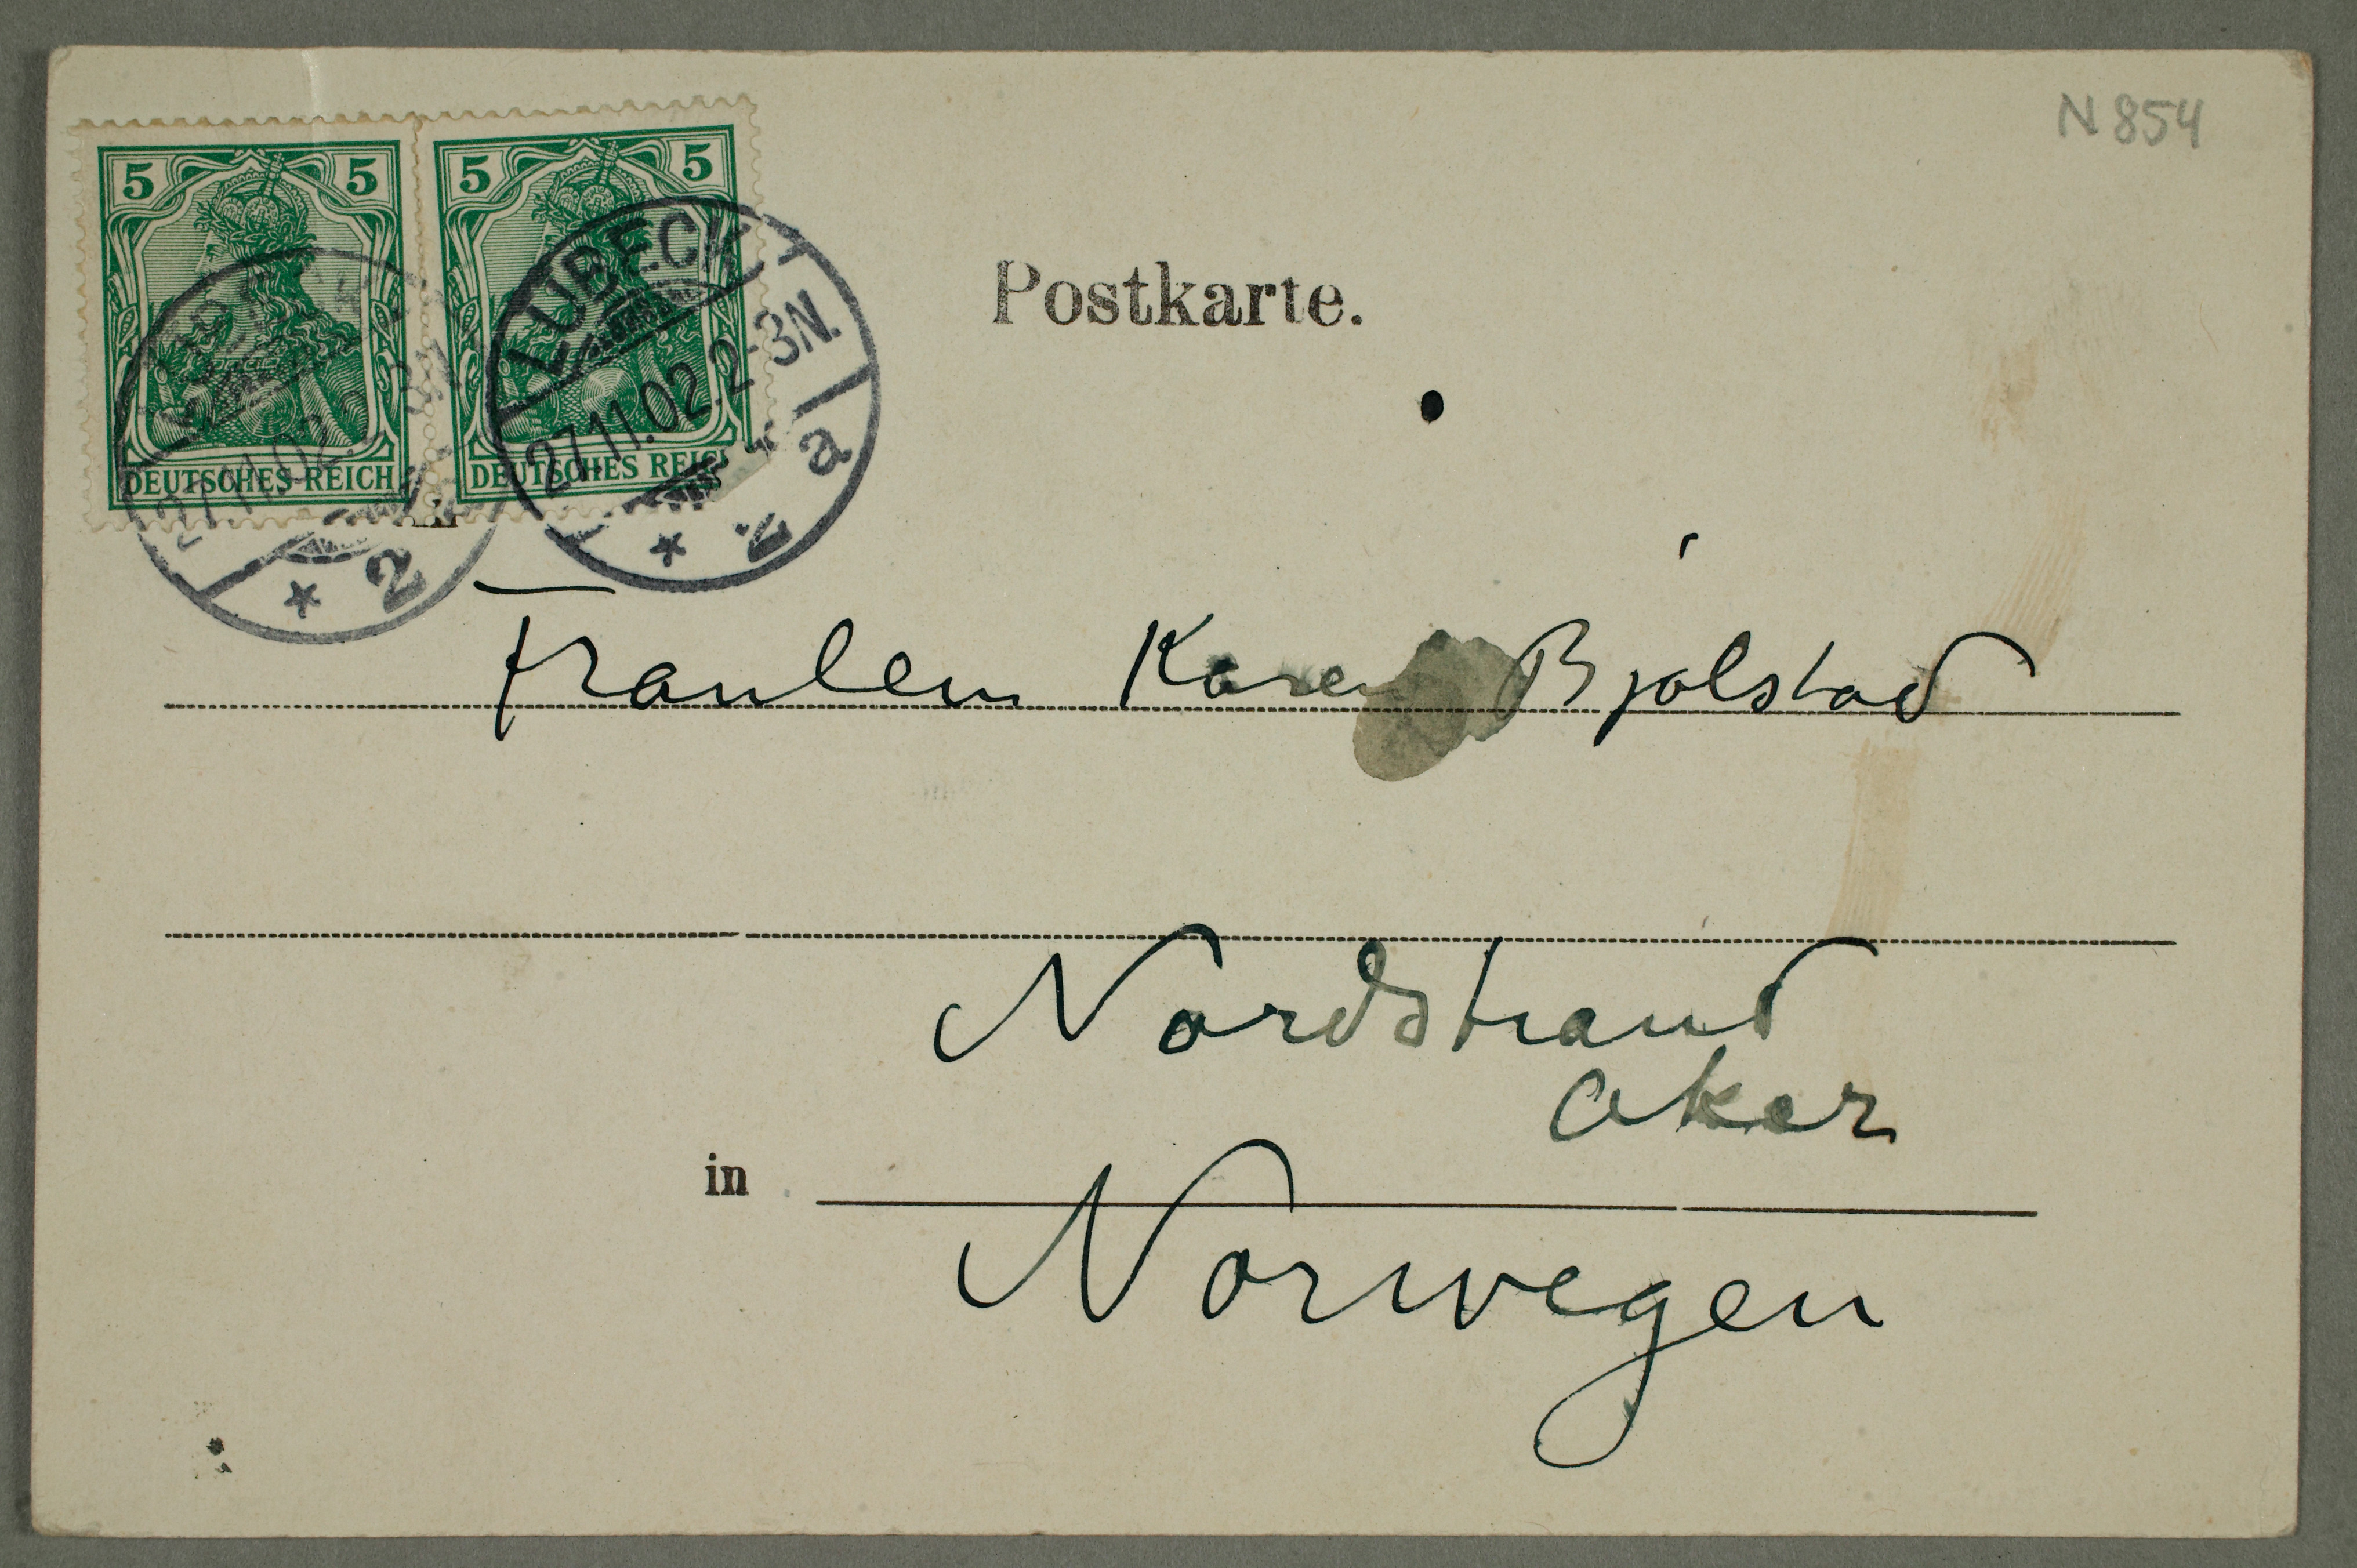 N 854
5 5
DEUTSCHES REICH
5 5
DEUTSCHES REICH
LÜBECK
27.11.02. 2-3N.
* 2 a
27.11.02.
* 2
Postkarte.
Fraulein Karen Bjølstad
Nordstrand
Aker
in
Norwegen